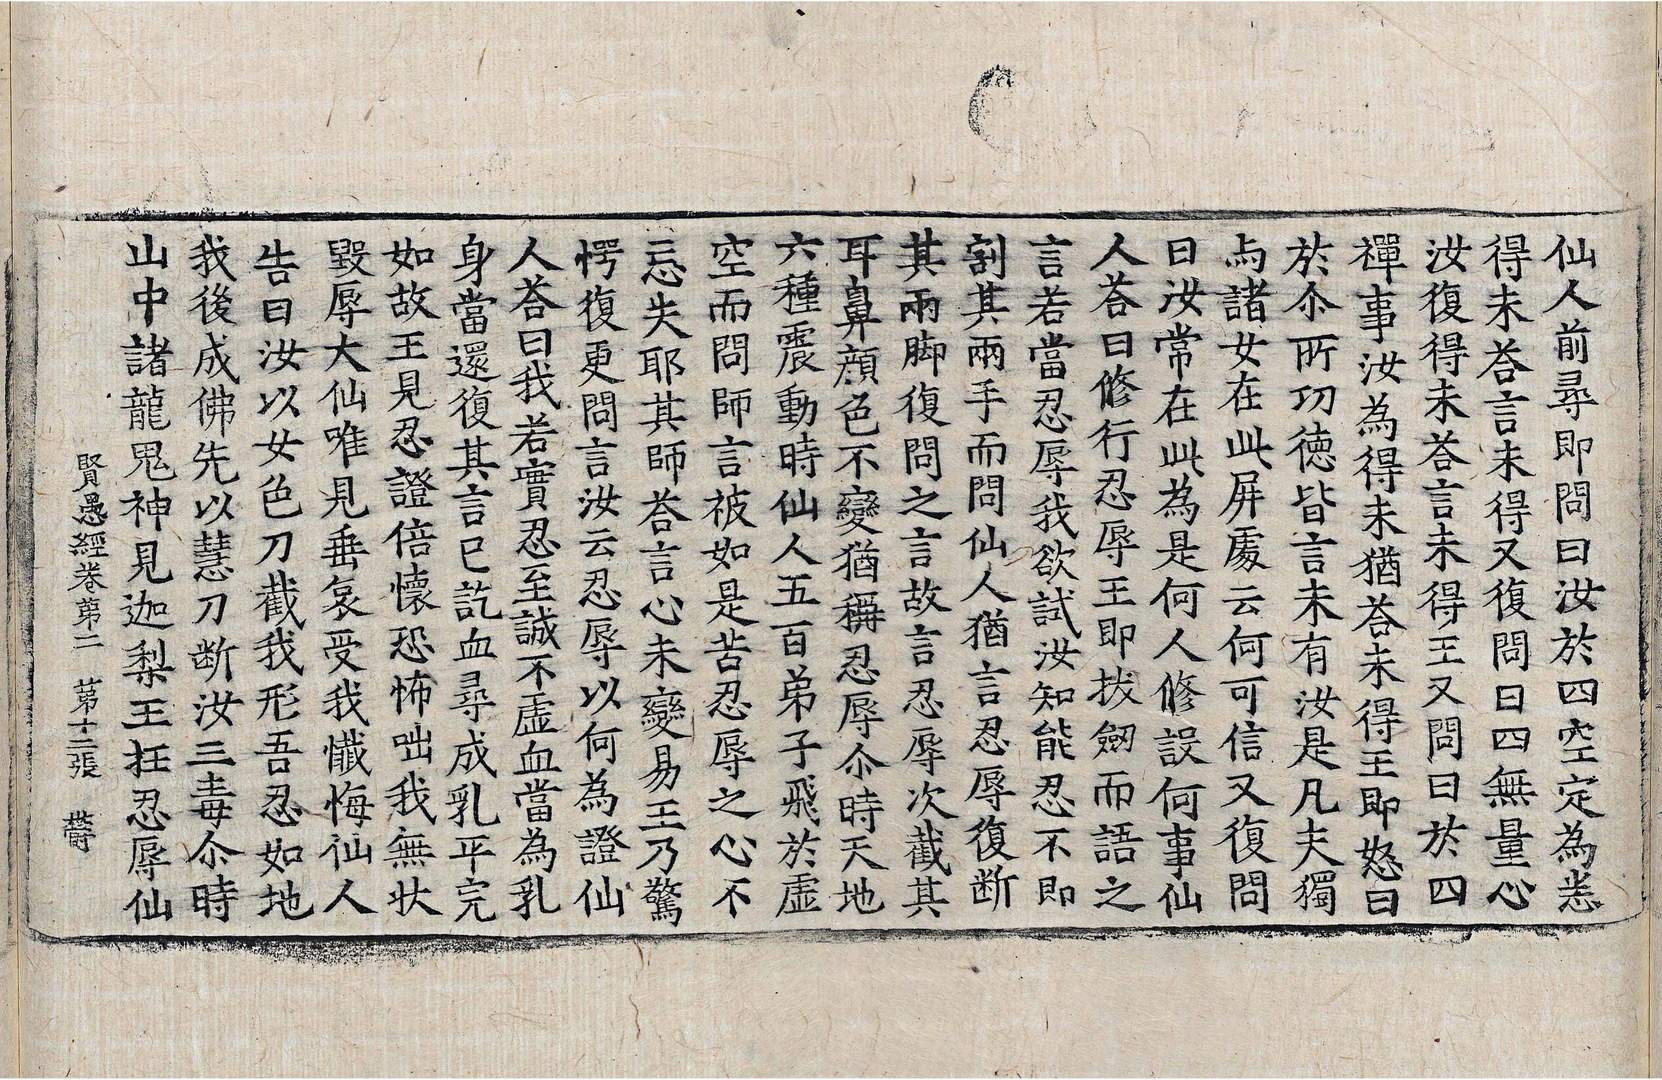 仙人前尋即問曰汝於四空定為悉
得未荅言未得又復問曰四無量心
汝復得未荅言未得王又問曰於四
禪事汝為得未猶荅未得王即怒曰
於尒所功德皆言未有汝是凡夫獨
与諸女在此屏處云何可信又復問
曰汝常在此為是何人修設何事仙
人荅曰修行忍辱王即拔劒而語之
言若當忍辱我欲試汝知能忍不即
割其兩手而問仙人猶言忍辱復断
其兩脚復問之言故言忍辱次截其
耳鼻顔色不變猶稱忍辱尒時天地
六種震動時仙人五百弟子飛於虛
空而問師言被如是苦忍辱之心不
忘失耶其師荅言心未變易王乃驚
愕復更問言汝云忍辱以何為證仙
人荅曰我若實忍至誠不虛血當為乳
身當還復其言已訖血尋成乳平完
如故王見忍證倍懷恐怖咄我無状
毀辱大仙唯見垂哀受我懺悔仙人
告曰汝以女色刀截我形吾忍如地
我後成佛先以慧刀断汝三毒尒時
山中諸龍鬼神見迦梨王抂忍辱仙
賢愚經卷第二　第十二張　欝